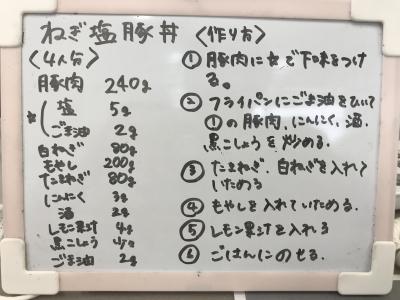 ねぎ塩豚丼
〈4人分〉
豚肉 240g
☆ 塩 5g
ごま油 2g
白ねぎ 80g
もやし 200g
たまねぎ 80g
にんにく 3g
酒 2g
レモン果汁 4g
黒こしょう
ごま油 2g
〈作り方〉
① 豚肉に☆で下味をつけ
る。
② フライパンにごま油をひいて
①の豚肉、にんにく、酒、
黒こしょうを炒める。
③ たまねぎ、白ねぎを入れて
いためる
④ もやしを入れていためる.
⑤ レモン果汁を入れる
⑥ ごはんにのせる.